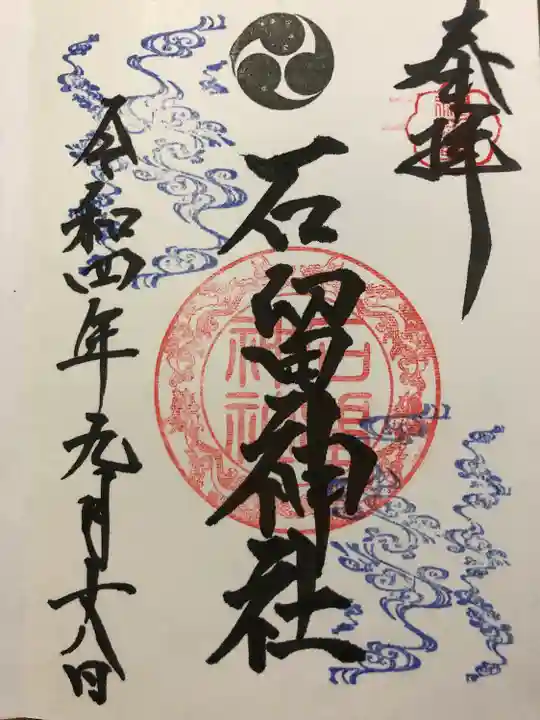 奉拝
石留神社
石留神社
令和四年九月十八日